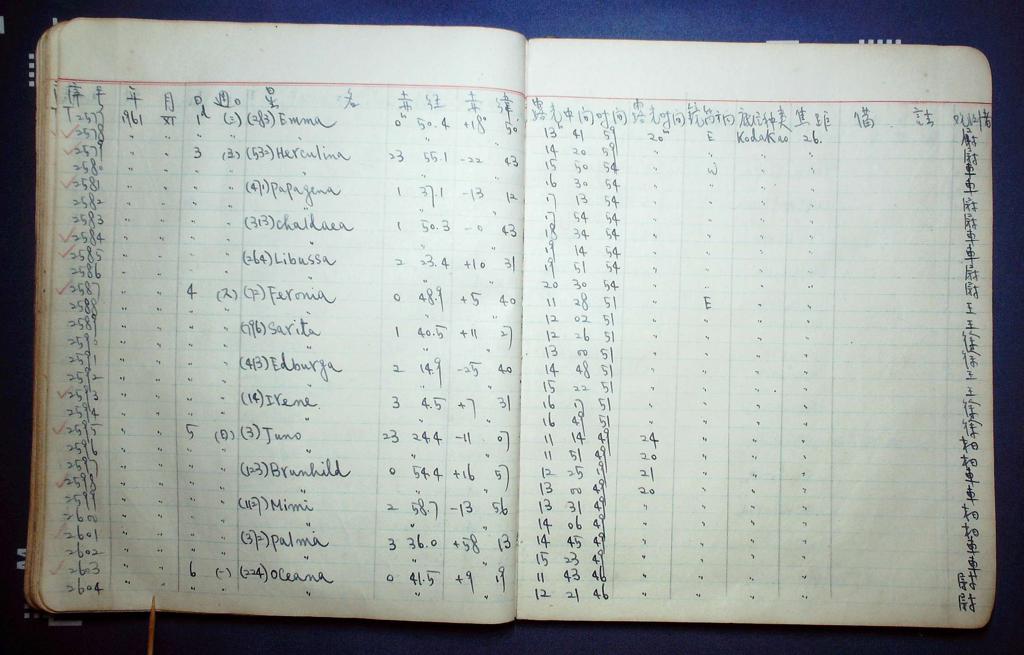 序号 年 月 日 週 星 名 赤经 赤纬 露光中间时间 露光时间 镜筒 底片种类 焦距 備 註 观测者
2577 1961 XI 1d (三) (283) Emma 0h 50.4 +18° 50' 13h 41 59 20m E Kodak 26.
2578 " " " " " " " 14 20 59 " " " "
2579 " " 3 (五) (532) Herculina 23 55.1 -22 43 15 50 54 " W " "
2580 " " " " " " " 16 30 54 " " " "
2581 " " " " (471) Papagena 1 37.1 -13 12 17 13 54 " " " "
2582 " " " " " " " 17 54 54 " " " "
2583 " " " " (313) Chaldaea 1 50.3 -0 43 18 34 54 " " " "
2584 " " " " " " " 19 14 54 " " " "
2585 " " " " (264) Libussa 2 23.4 +10 31 19 51 54 " " " "
2586 " " " " " " " 20 30 54 " " " "
2587 " " 4 (六) (72) Feronia 0 48.9 +5 40 11 28 51 " E " " 王
2588 " " " " " " " 12 02 51 " " " " 王
2589 " " " " (796) Sarita 1 40.5 +11 27 12 26 51 " " " " 徐
2590 " " " " " " " 13 00 51 " " " " 徐
2591 " " " " (413) Edburga 2 14.9 -25 40 14 48 51 " " " " 王
2592 " " " " " " " 15 22 51 " " " " 王
2593 " " " " (14) Irene 3 4.5 +7 31 16 17 51 " " " " 徐
2594 " " " " " " " 16 49 51 " " " " 徐
2595 " " 5 (日) (3) Juno 23 24.4 -11 07 11 14 49 24 " " "
2596 " " " " " " " 11 51 49 20 " " "
2597 " " " " (123) Brunhild 0 54.4 +16 57 12 25 49 21 " " "
2598 " " " " " " " 13 00 49 20 " " "
2599 " " " " (1127) Mimi 2 58.7 -13 56 13 31 49 " " " "
2600 " " " " " " " 14 06 49 " " " "
2601 " " " " (372) Palma 3 36.0 +58 13 14 45 49 " " " "
2602 " " " " " " " 15 23 49 " " " "
2603 " " 6 (一) (224) Oceana 0 41.5 +9 19 11 43 46 " " " "
2604 " " " " " " " 12 21 46 " " " "